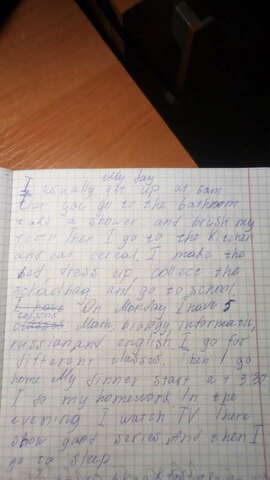 My day
I usually get up at 6am
go to the bathroom
take a shower and brush my
teeth then I go to the kitchen
and eat cereal I make the
bed, dress up, collect the
schoolbag and go to school
On Monday I have 5
lessons Math, biology, informatic,
russian and english I go for
different classes. Then I go
home My dinner start at 3.30
I do my homework In the
evening I watch TV There
show good series And then I
go to sleep